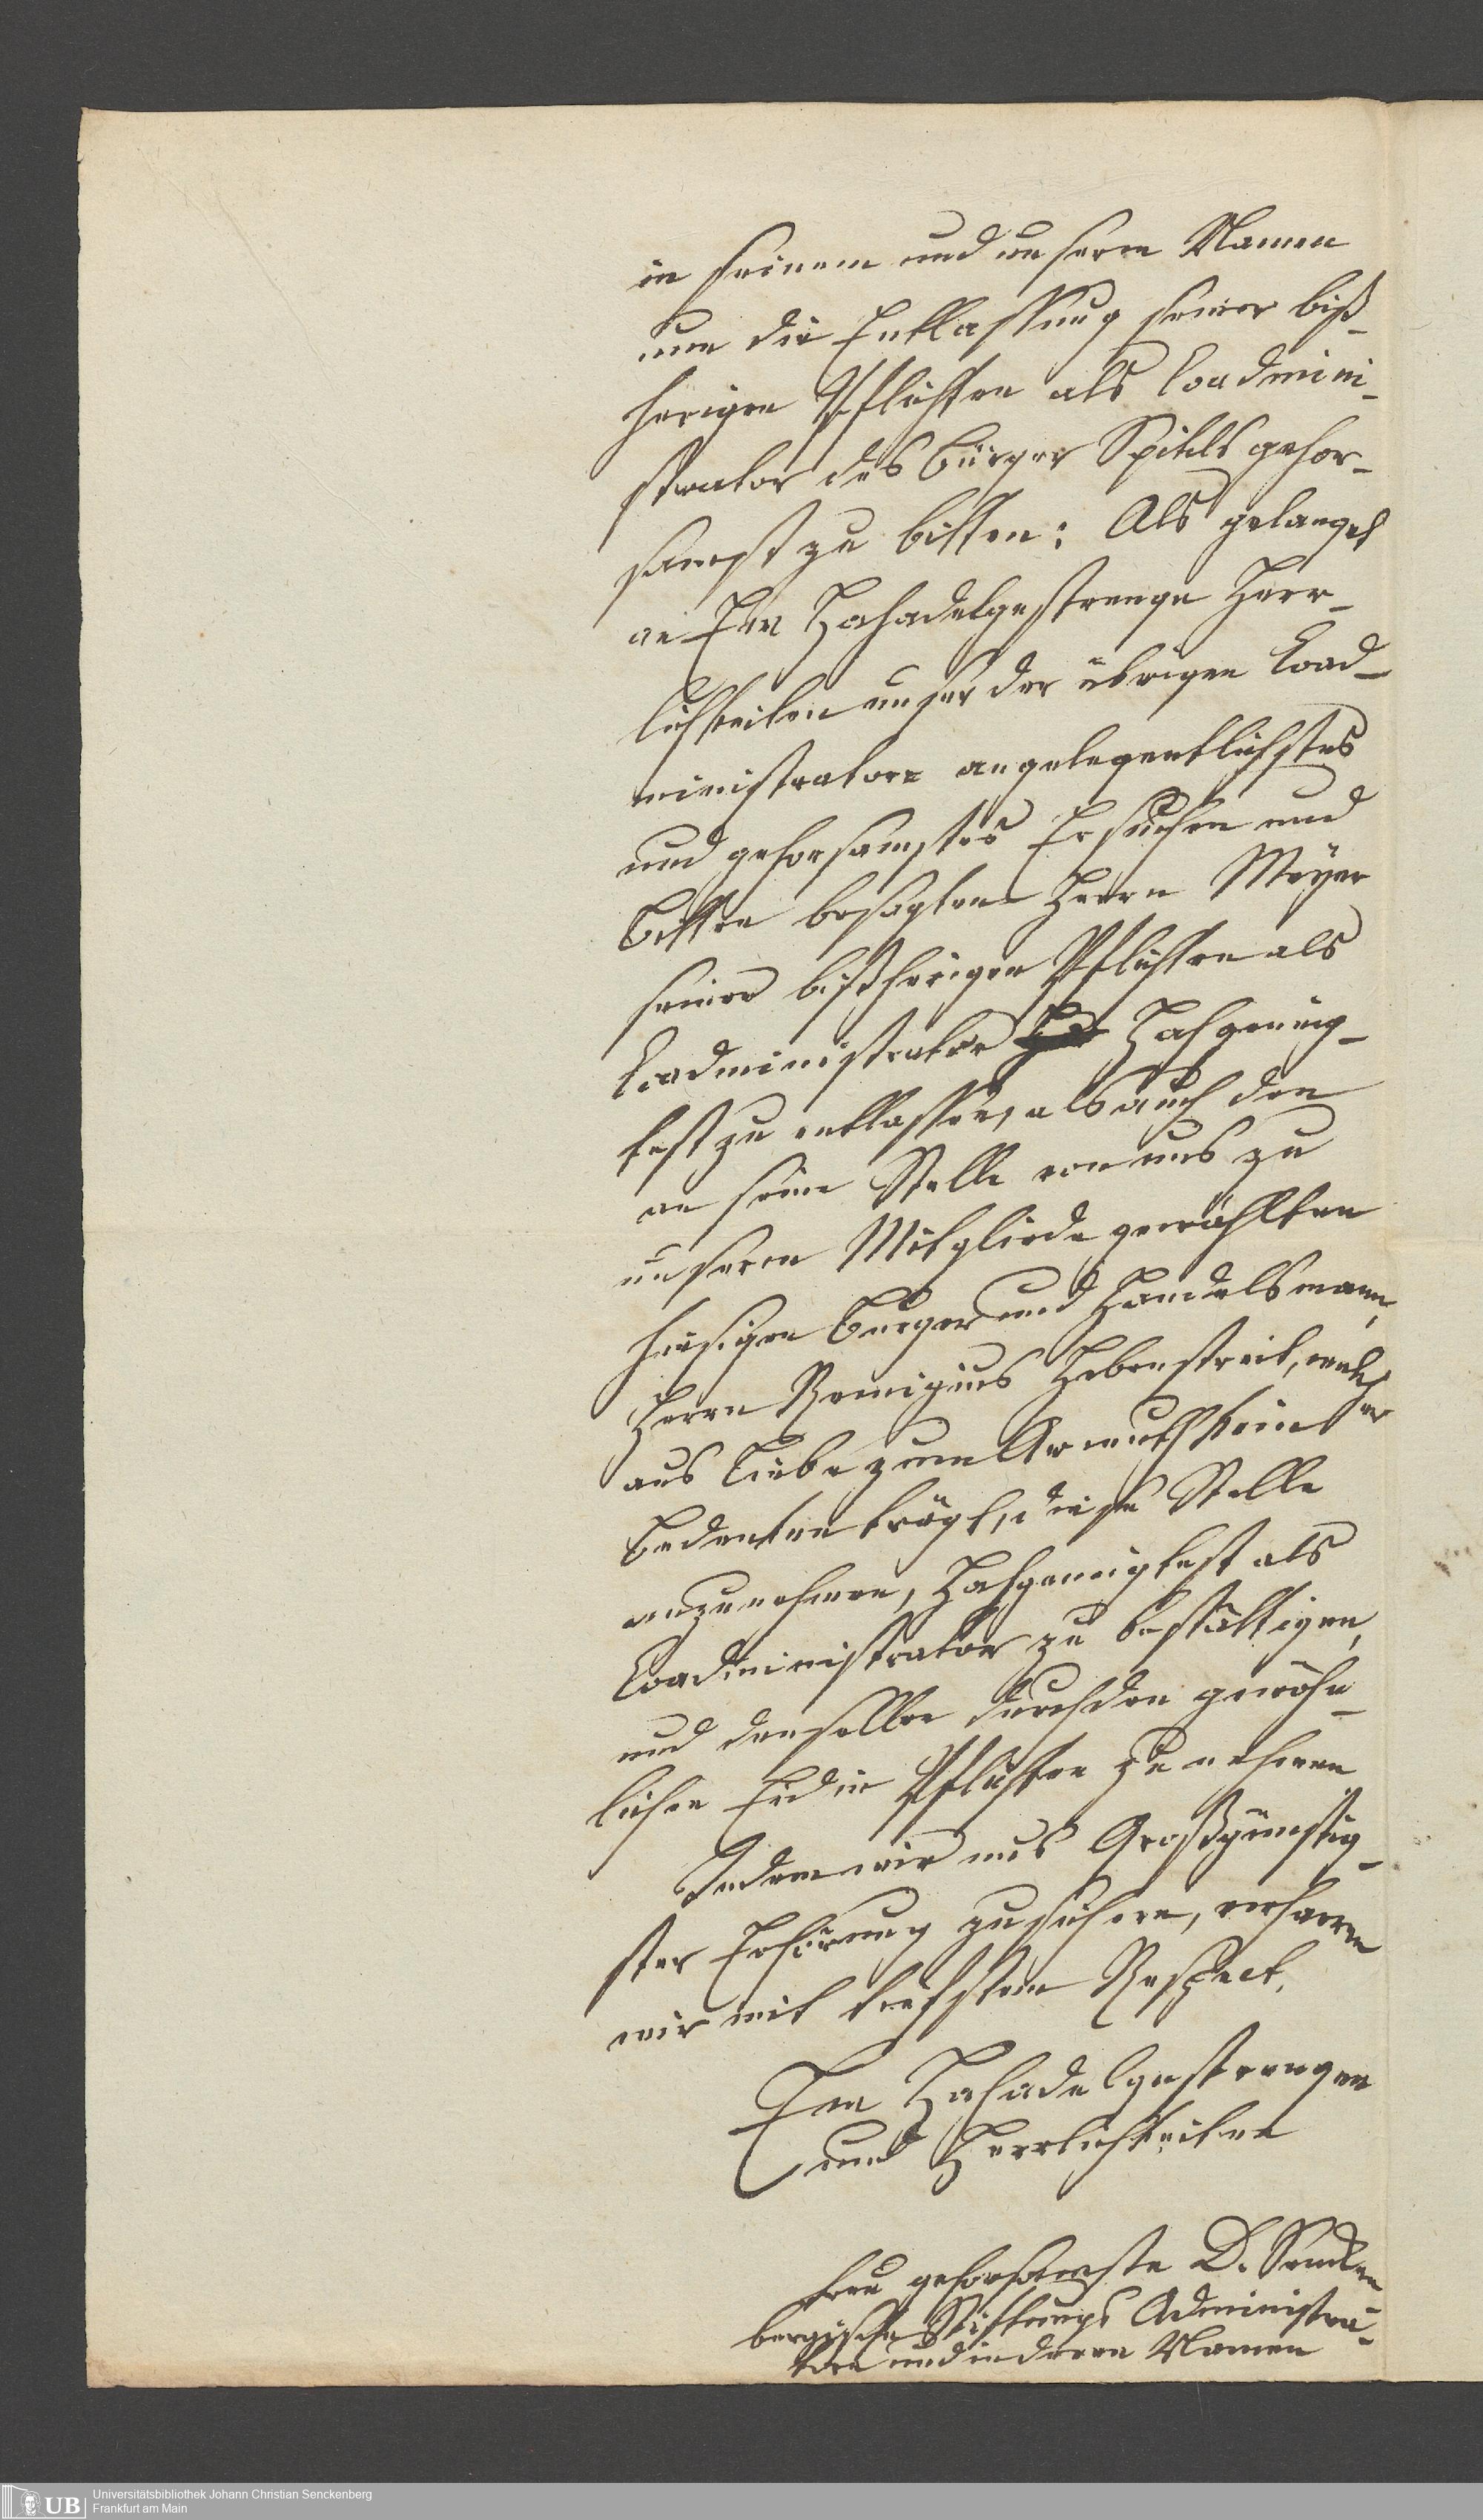 in seinem und unserm Namen
um die Entlassung seiner biß-
herigen Pflichten als Coadmini-
strator des Bürger Spitals gehor-
samst zu bitten: Als gelanget
an Ew Hochadelgestrenge Herr-
lichkeiten unser der übrigen Coad-
ministratorn angelegentlichstes
und gehorsamstes Ersuchen und
Bitten besagten Herrn Meyer
seiner bißherigen Pflichten als
Coadministrator Hochgeneig-
test zu entlassen, als auch den
an seine Stelle von uns zu
unserm Mitgliede gewählten
hiesigen Burger und Handelsmann,
Herrn Remigius Hebenstreit, welcher
aus Liebe zum Armuth kein
Bedenken trägt, diese Stelle
anzunehmen, Hochgeneigtest als
Coadministrator zu bestättigen,
und denselben durch den gewöhn-
lichen Eid in Pflichten zu nehmen
Indem wir uns Großgünstig-
ster Erhörung zusichern, verharren
wir mit tiefstem Respect.
Ew Hochadelgestrengen
und Herrlichkeiten
treu gehorsamste D. Sencken-
bergische Stiftungs Administra-
tion und in deren Namen
Universitätsbibliothek Johann Christian Senckenberg
UB Frankfurt am Main